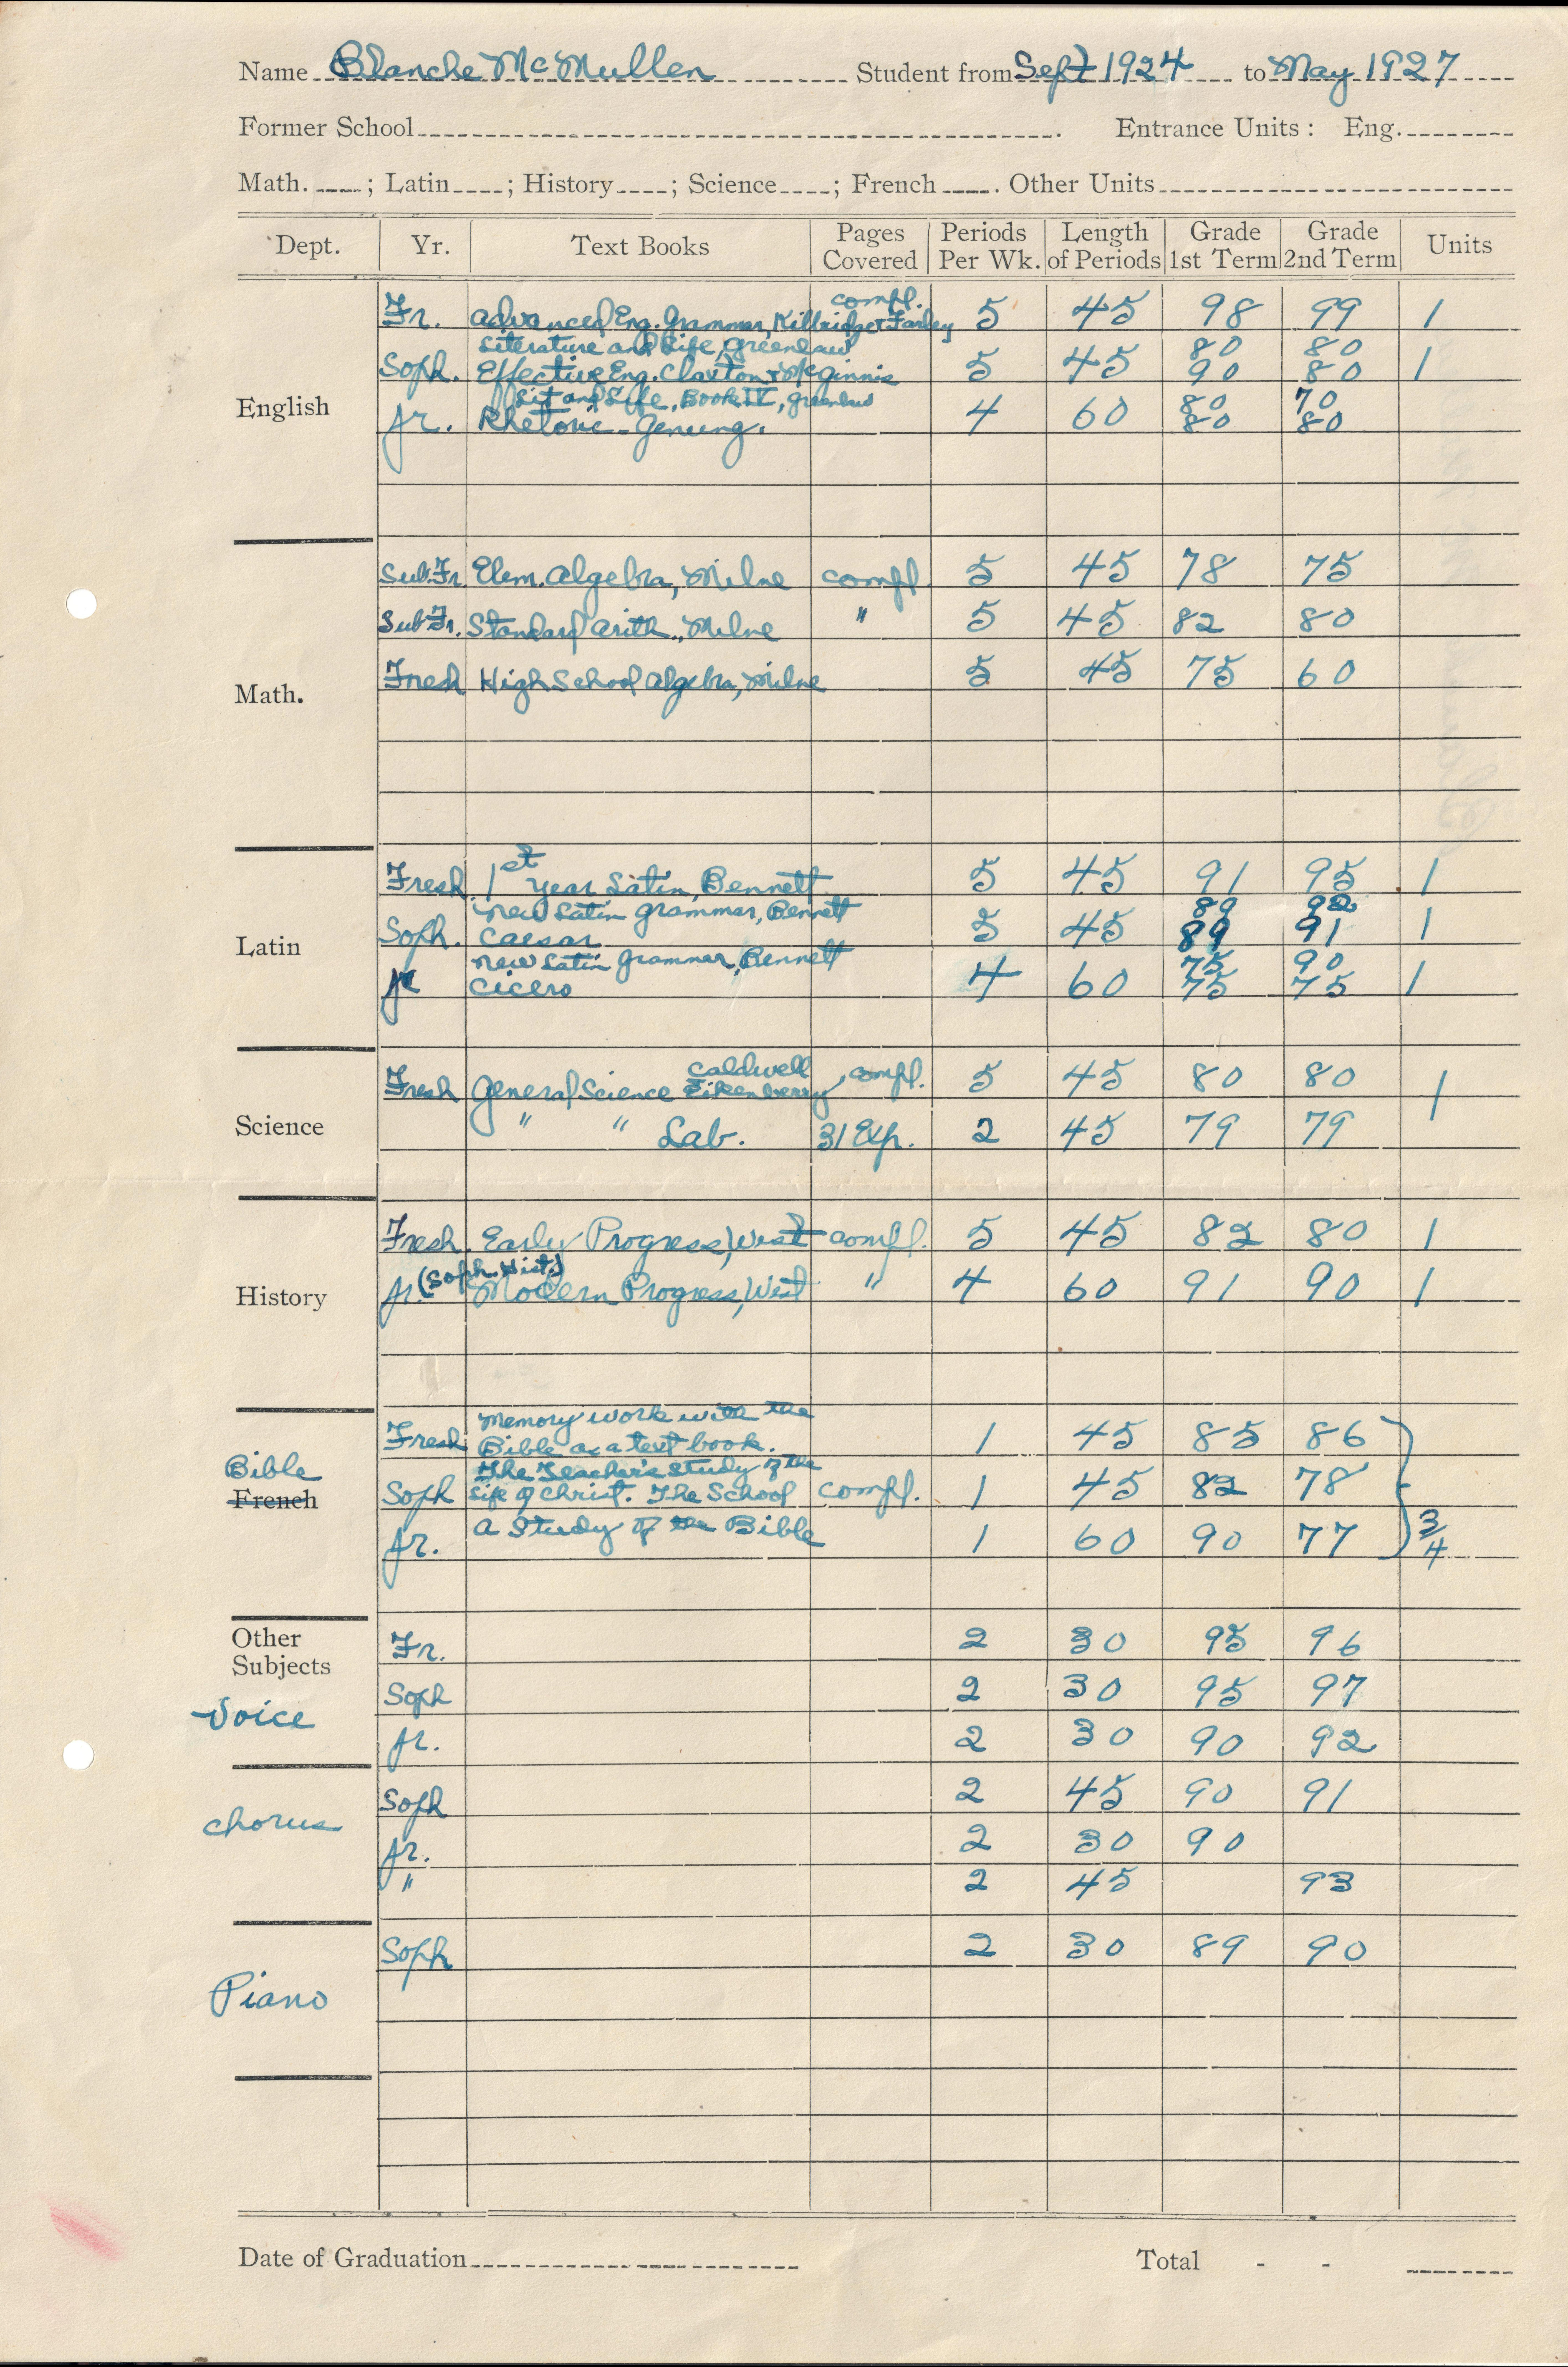 Name Blanche McMullen Student from Sept 1924 to May 1927
Former School. Entrance Units: Eng.
Math. ; Latin ; History ; Science ; French . Other Units
Dept. Yr. Text Books Pages Covered Periods Per Wk. Length of Periods Grade 1st Term Grade 2nd Term Units
English
Fr. Advanced Eng. Grammar, Kittredge & Farley compl. 5 45 98 99 1
Literature and Life, Greenlaw 80 80
Soph. Effective Eng. Claxton & McGinnis 5 45 90 80 1
Lit and Life, Book IV, Greenlaw 80 70
Jr. Rhetoric - Genung. 4 60 80 80
Math.
Sub Fr. Elem. Algebra, Milne compl. 5 45 78 75
Sub Fr. Standard Arith., Milne " 5 45 82 80
Fresh High School Algebra, Milne 5 45 75 60
Latin
Fresh. 1st Year Latin, Bennett 5 45 91 95 1
New Latin Grammar, Bennett 89 92
Soph. Caesar 5 45 89 91 1
New Latin Grammar, Bennett 75 90
Jr Cicero 4 60 75 75 1
Science
Fresh General Science Caldwell Eikenberry, compl. 5 45 80 80 1
" " Lab. 31 Exp. 2 45 79 79
History
Fresh. Early Progress, West compl. 5 45 82 80 1
Jr. (Soph. Hist.) Modern Progress, West " 4 60 91 90 1
Bible
French
Memory work with the
Fresh Bible as a text book. 1 45 85 86
The Teacher's Study of the
Soph Life of Christ. The School compl. 1 45 82 78
Jr. A Study of the Bible 1 60 90 77 3/4
Other
Subjects
Voice
Fr. 2 30 95 96
Soph 2 30 95 97
Jr. 2 30 90 92
Chorus
Soph 2 45 90 91
Jr. 2 30 90
" 2 45 93
Piano
Soph 2 30 89 90
Date of Graduation Total - -